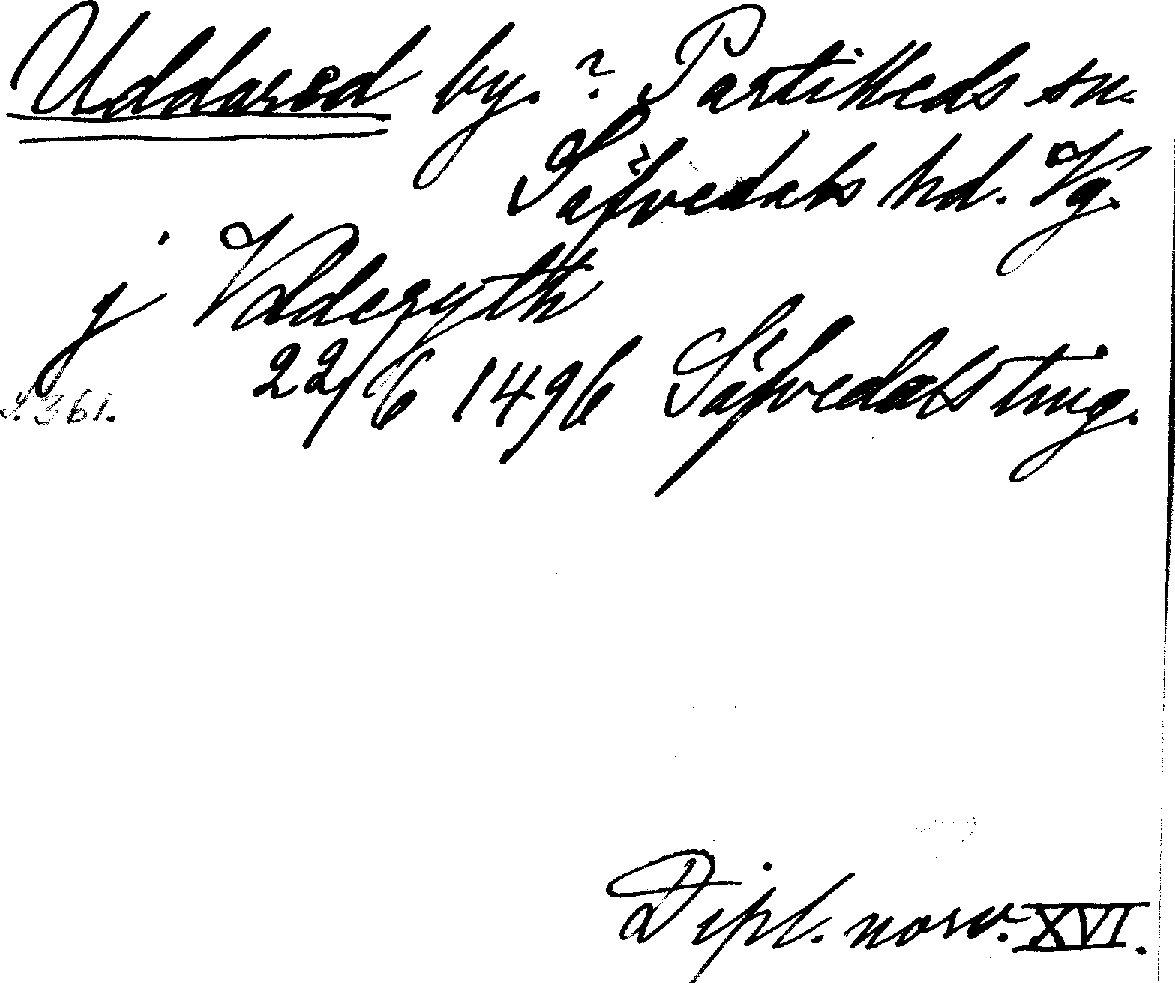 Uddaröd by. ? Partilleds sn.
Säfvedals hd. Vg.
j Vdderyth
22/6 1496 Säfvedals ting.
S. 361.
Dipl. norv. XVI.